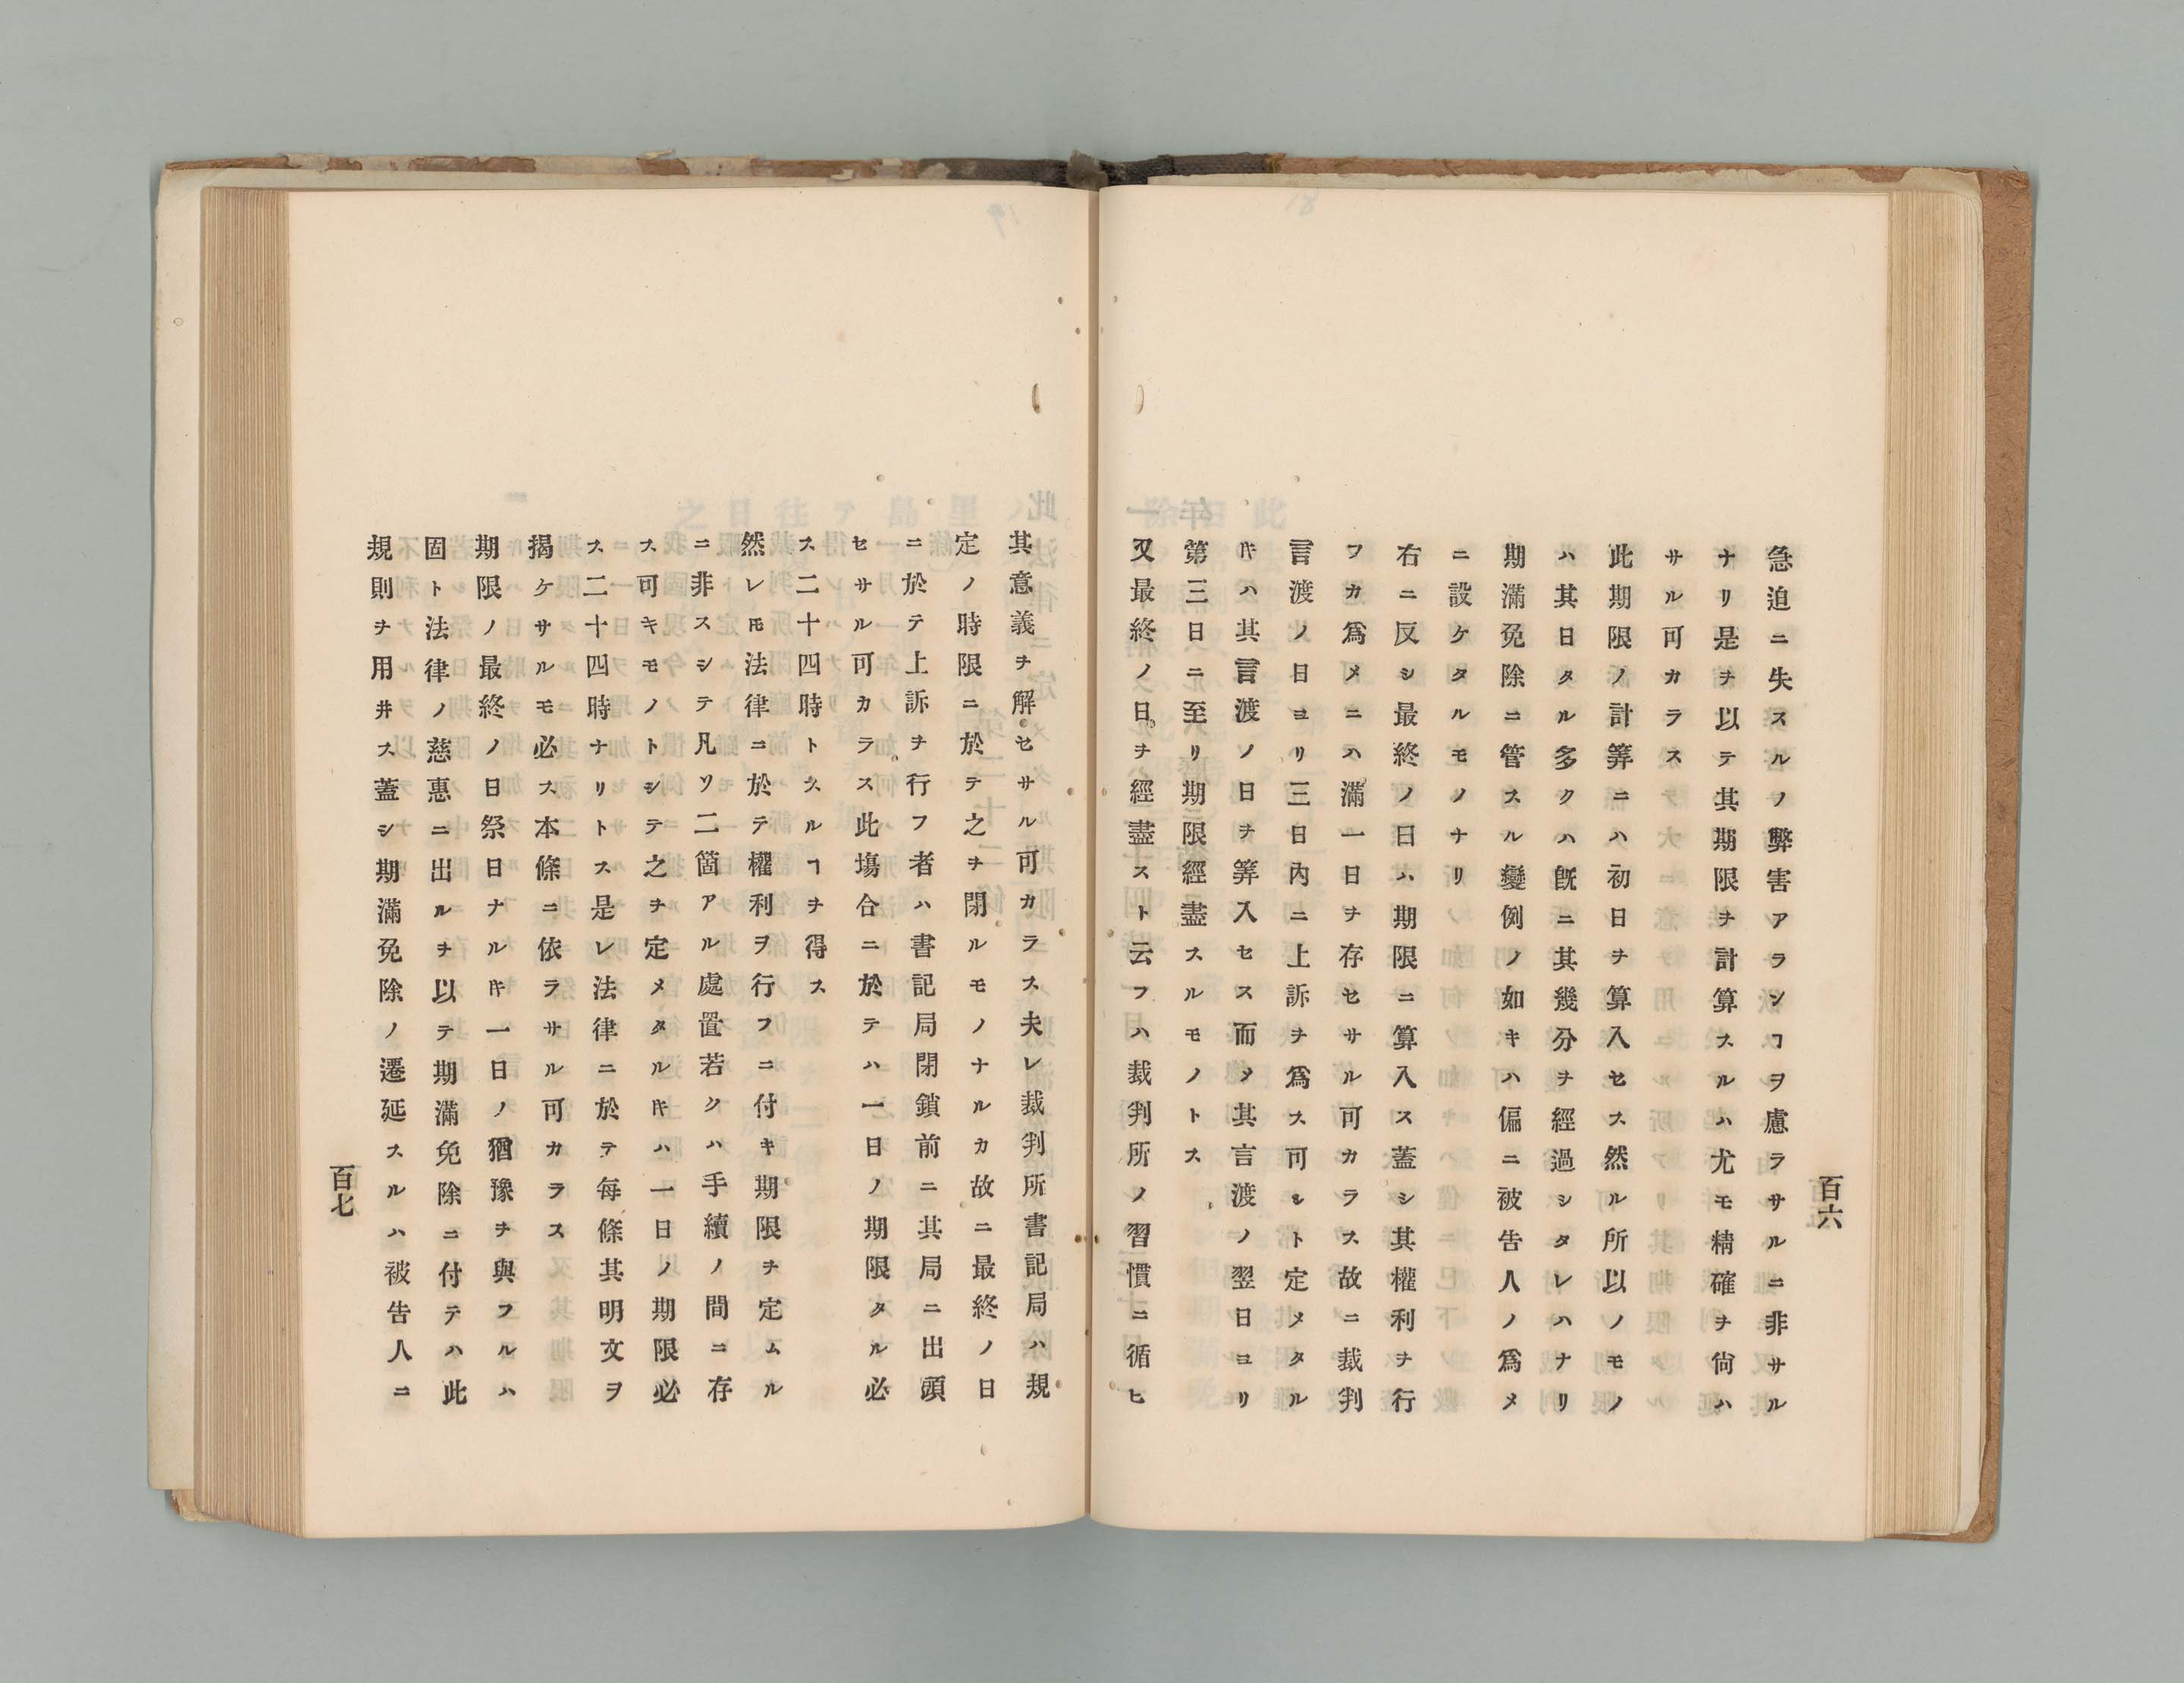 百六
急迫ニ失スルノ弊害アランヿヲ慮ラサルニ非サル
ナリ是ヲ以テ其期限ヲ計算スルハ尤モ精確ヲ尙ハ
サル可カラス
此期限ノ計筭ニハ初日ヲ算入セス然ル所以ノモノ
ハ其日タル多クハ旣ニ其幾分ヲ經過シタレハナリ
期滿免除ニ管スル變例ノ如キハ偏ニ被告人ノ爲メ
ニ設ケタルモノナリ
右ニ反シ最終ノ日ハ期限ニ算入ス蓋シ其權利ヲ行
フカ爲メニハ滿一日ヲ存セサル可カラス故ニ裁判
言渡ノ日ヨリ三日內ニ上訴ヲ爲ス可シト定メタル
𪜈ハ其言渡ノ日ヲ筭入セス而〆其言渡ノ翌日ヨリ
第三日ニ至リ期限經盡スルモノトス
又最終ノ日ヲ經盡スト云フハ裁判所ノ習慣ニ循ヒ
其意義ヲ解セサル可カラス夫レ裁判所書記局ハ規
定ノ時限ニ於テ之ヲ閉ルモノナルカ故ニ最終ノ日
ニ於テ上訴ヲ行フ者ハ書記局閉鎖前ニ其局ニ出頭
セサル可カラス此塲合ニ於テハ一日ノ期限タル必
ス二十四時トスルヿヲ得ス
然レ𪜈法律ニ於テ權利ヲ行フニ付キ期限ヲ定ムル
ニ非スシテ凡ソ二箇アル處置若クハ手續ノ間ニ存
ス可キモノトシテ之ヲ定メタル𪜈ハ一日ノ期限必
ス二十四時ナリトス是レ法律ニ於テ每條其明文ヲ
揭ケサルモ必ス本條ニ依ラサル可カラス
期限ノ最終ノ日祭日ナル𪜈一日ノ猶豫ヲ與フルハ
固ト法律ノ慈惠ニ出ルヲ以テ期滿免除ニ付テハ此
規則ヲ用井ス蓋シ期滿免除ノ遷延スルハ被告人ニ
百七